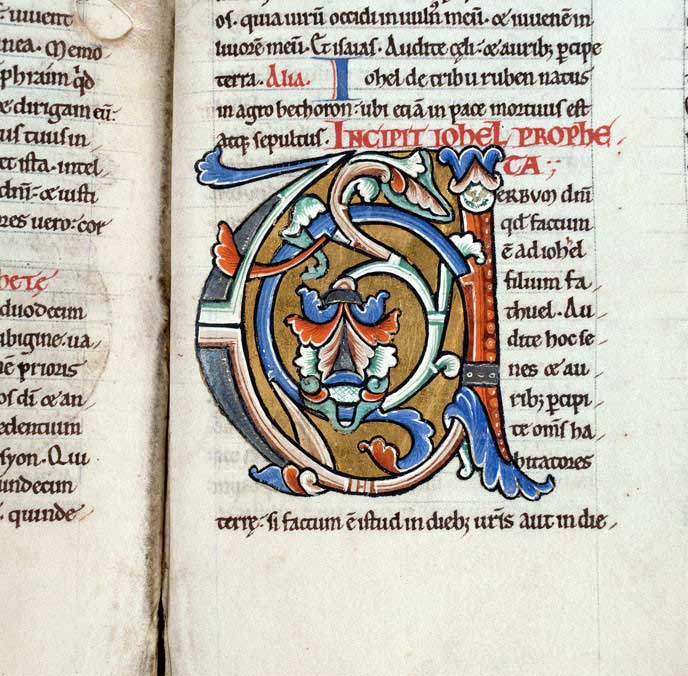 uiuent
inea. Memo
phraim qđ
æ dirigam eū:
us tuus in
ct ista. intel
dnī: æ iusti
res uero: cor
hete
duodecim
bigine. ua
nē prioris
os dī æ an
edentium
syon. Qui
undecim
. quinde
os. quia uirū occidi in uuln̄ meū. æ iuuenē in
liuorē meū. Et isaias. Audite cęli. æ aurib; ꝑcipe
terra. Alia. Iohel de tribu ruben natus
in agro bechoron. ubi etiā in pace mortuus est
atq; sepultus. INCIPIT IOHEL PROPHE
TA;
VERBUM dnī
qđ factum
ē ad iohel
filium fa
thuel. Au
dite hoc se
nes æ au
rib; ꝑcipi
te oms̄ ha
bitatores
terrę. si factum ē istud in dieb; urīs aut in die